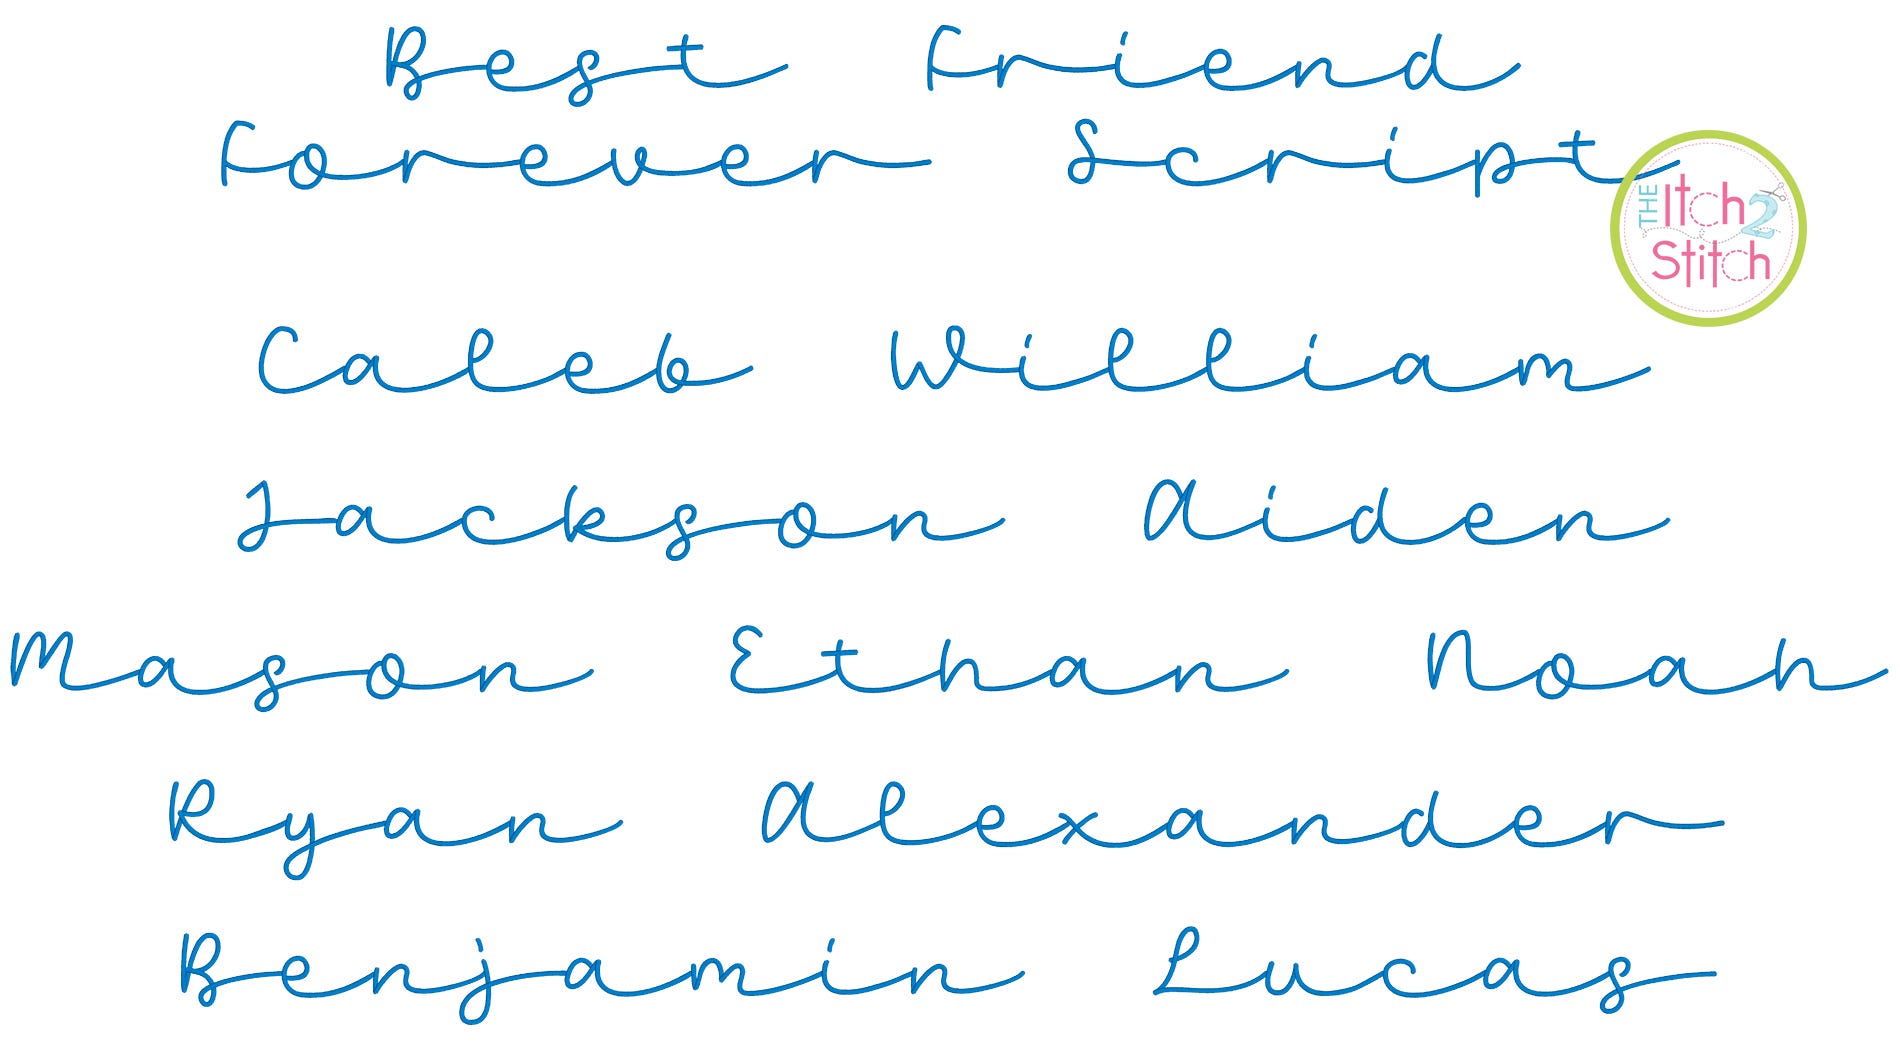 Best Friend
Forever Script
THE Itch 2 Stitch
Caleb William
Jackson Aiden
Mason Ethan Noah
Ryan Alexander
Benjamin Lucas